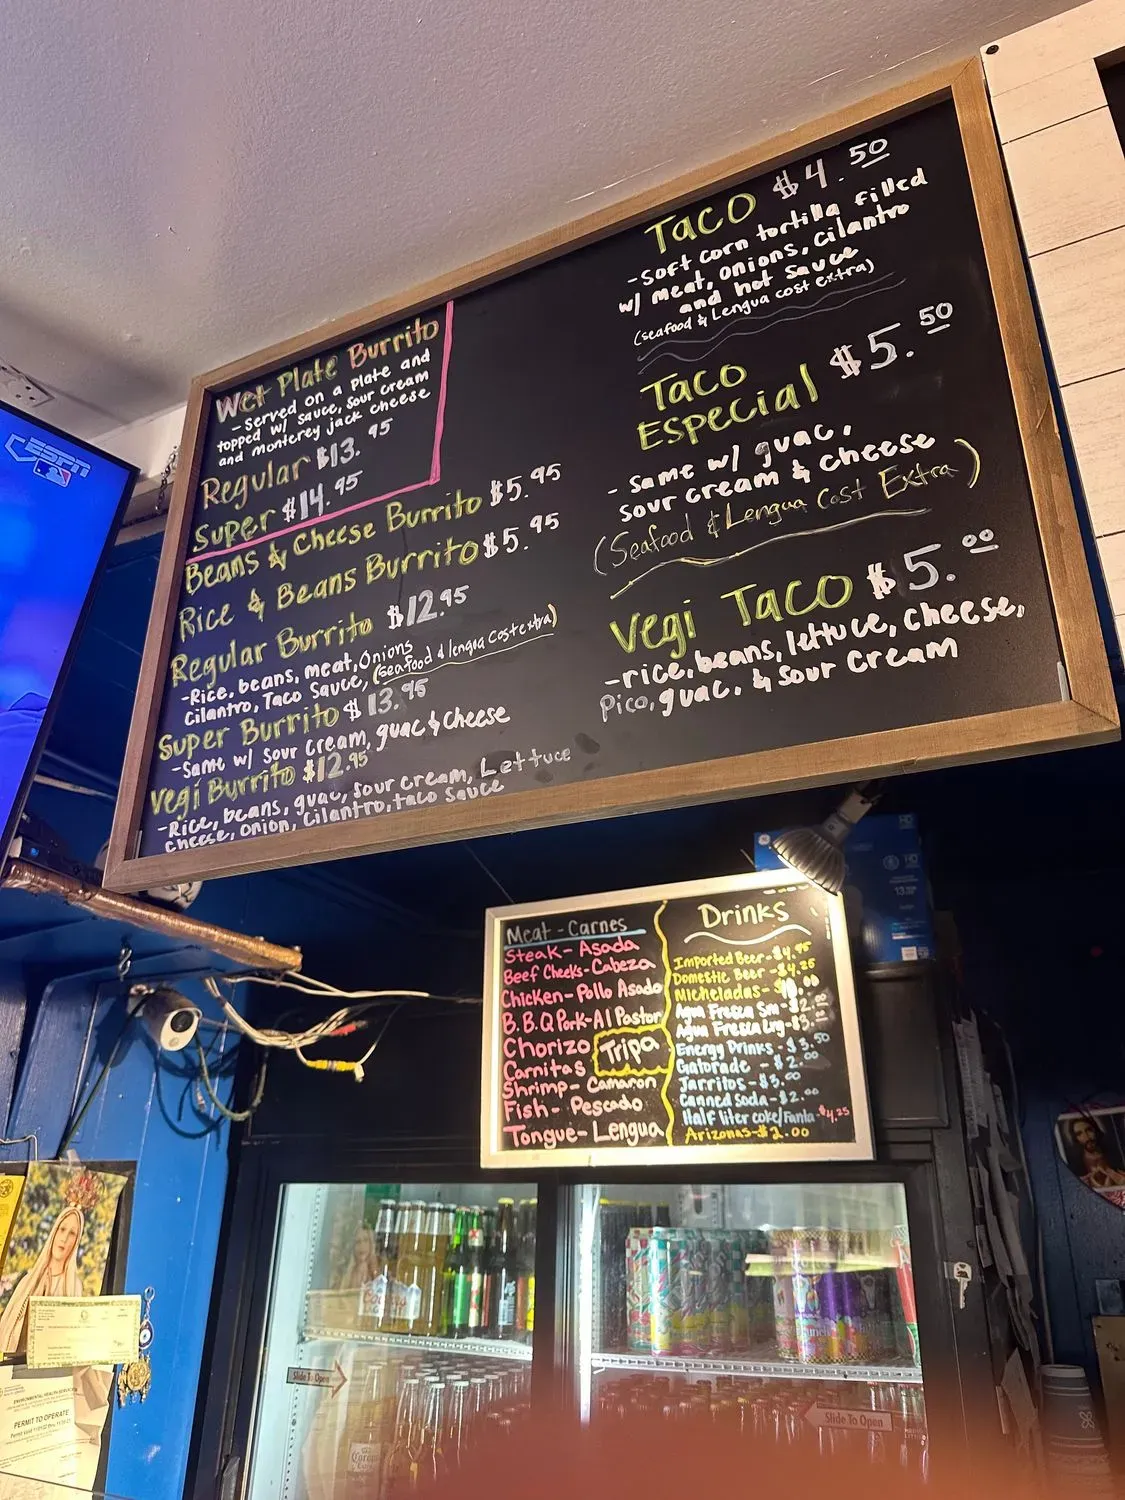 ESPN
Wet Plate Burrito
- Served on a Plate and
topped w/ sauce, sour cream
and monterey jack cheese
Regular $13.95
Super $14.95
Beans & Cheese Burrito $5.95
Rice & Beans Burrito $5.95
Regular Burrito $12.95
-Rice, beans, meat, Onions
Cilantro, Taco Sauce, (Seafood & lengua Cost extra)
Super Burrito $13.95
- Same w/ sour cream, guac & cheese
Vegi Burrito $12.95
-Rice, beans, guac, sour cream, Lettuce
cheese, onion, cilantro, taco sauce
TACO $4.50
- Soft corn tortilla filled
w/ meat, onions, cilantro
and hot sauce
(seafood & Lengua cost extra)
Taco
Especial $5.50
- Same w/ guac,
sour cream & cheese
(Seafood & Lengua Cost Extra)
Vegi Taco $5.00
-rice, beans, lettuce, cheese,
Pico, guac. & sour cream
Meat - Carnes
Steak - Asada
Beef Cheeks - Cabeza
Chicken - Pollo Asado
B.B.Q Pork - Al Pastor
Chorizo
Tripa
Carnitas
Shrimp - Camaron
Fish - Pescado
Tongue - Lengua
Drinks
Imported Beer - $4.95
Domestic Beer - $4.25
Micheladas -
Agua Fresca Sm -
Agua Fresca Lrg -
Energy Drinks - $3.50
Gatorade - $2.00
Jarritos - $3.00
Canned Soda - $2.00
Half liter coke/Fanta - $4.25
Arizonas - $2.00
Slide To Open
Slide To Open
ENVIRONMENTAL HEALTH SERVICES
PERMIT TO OPERATE